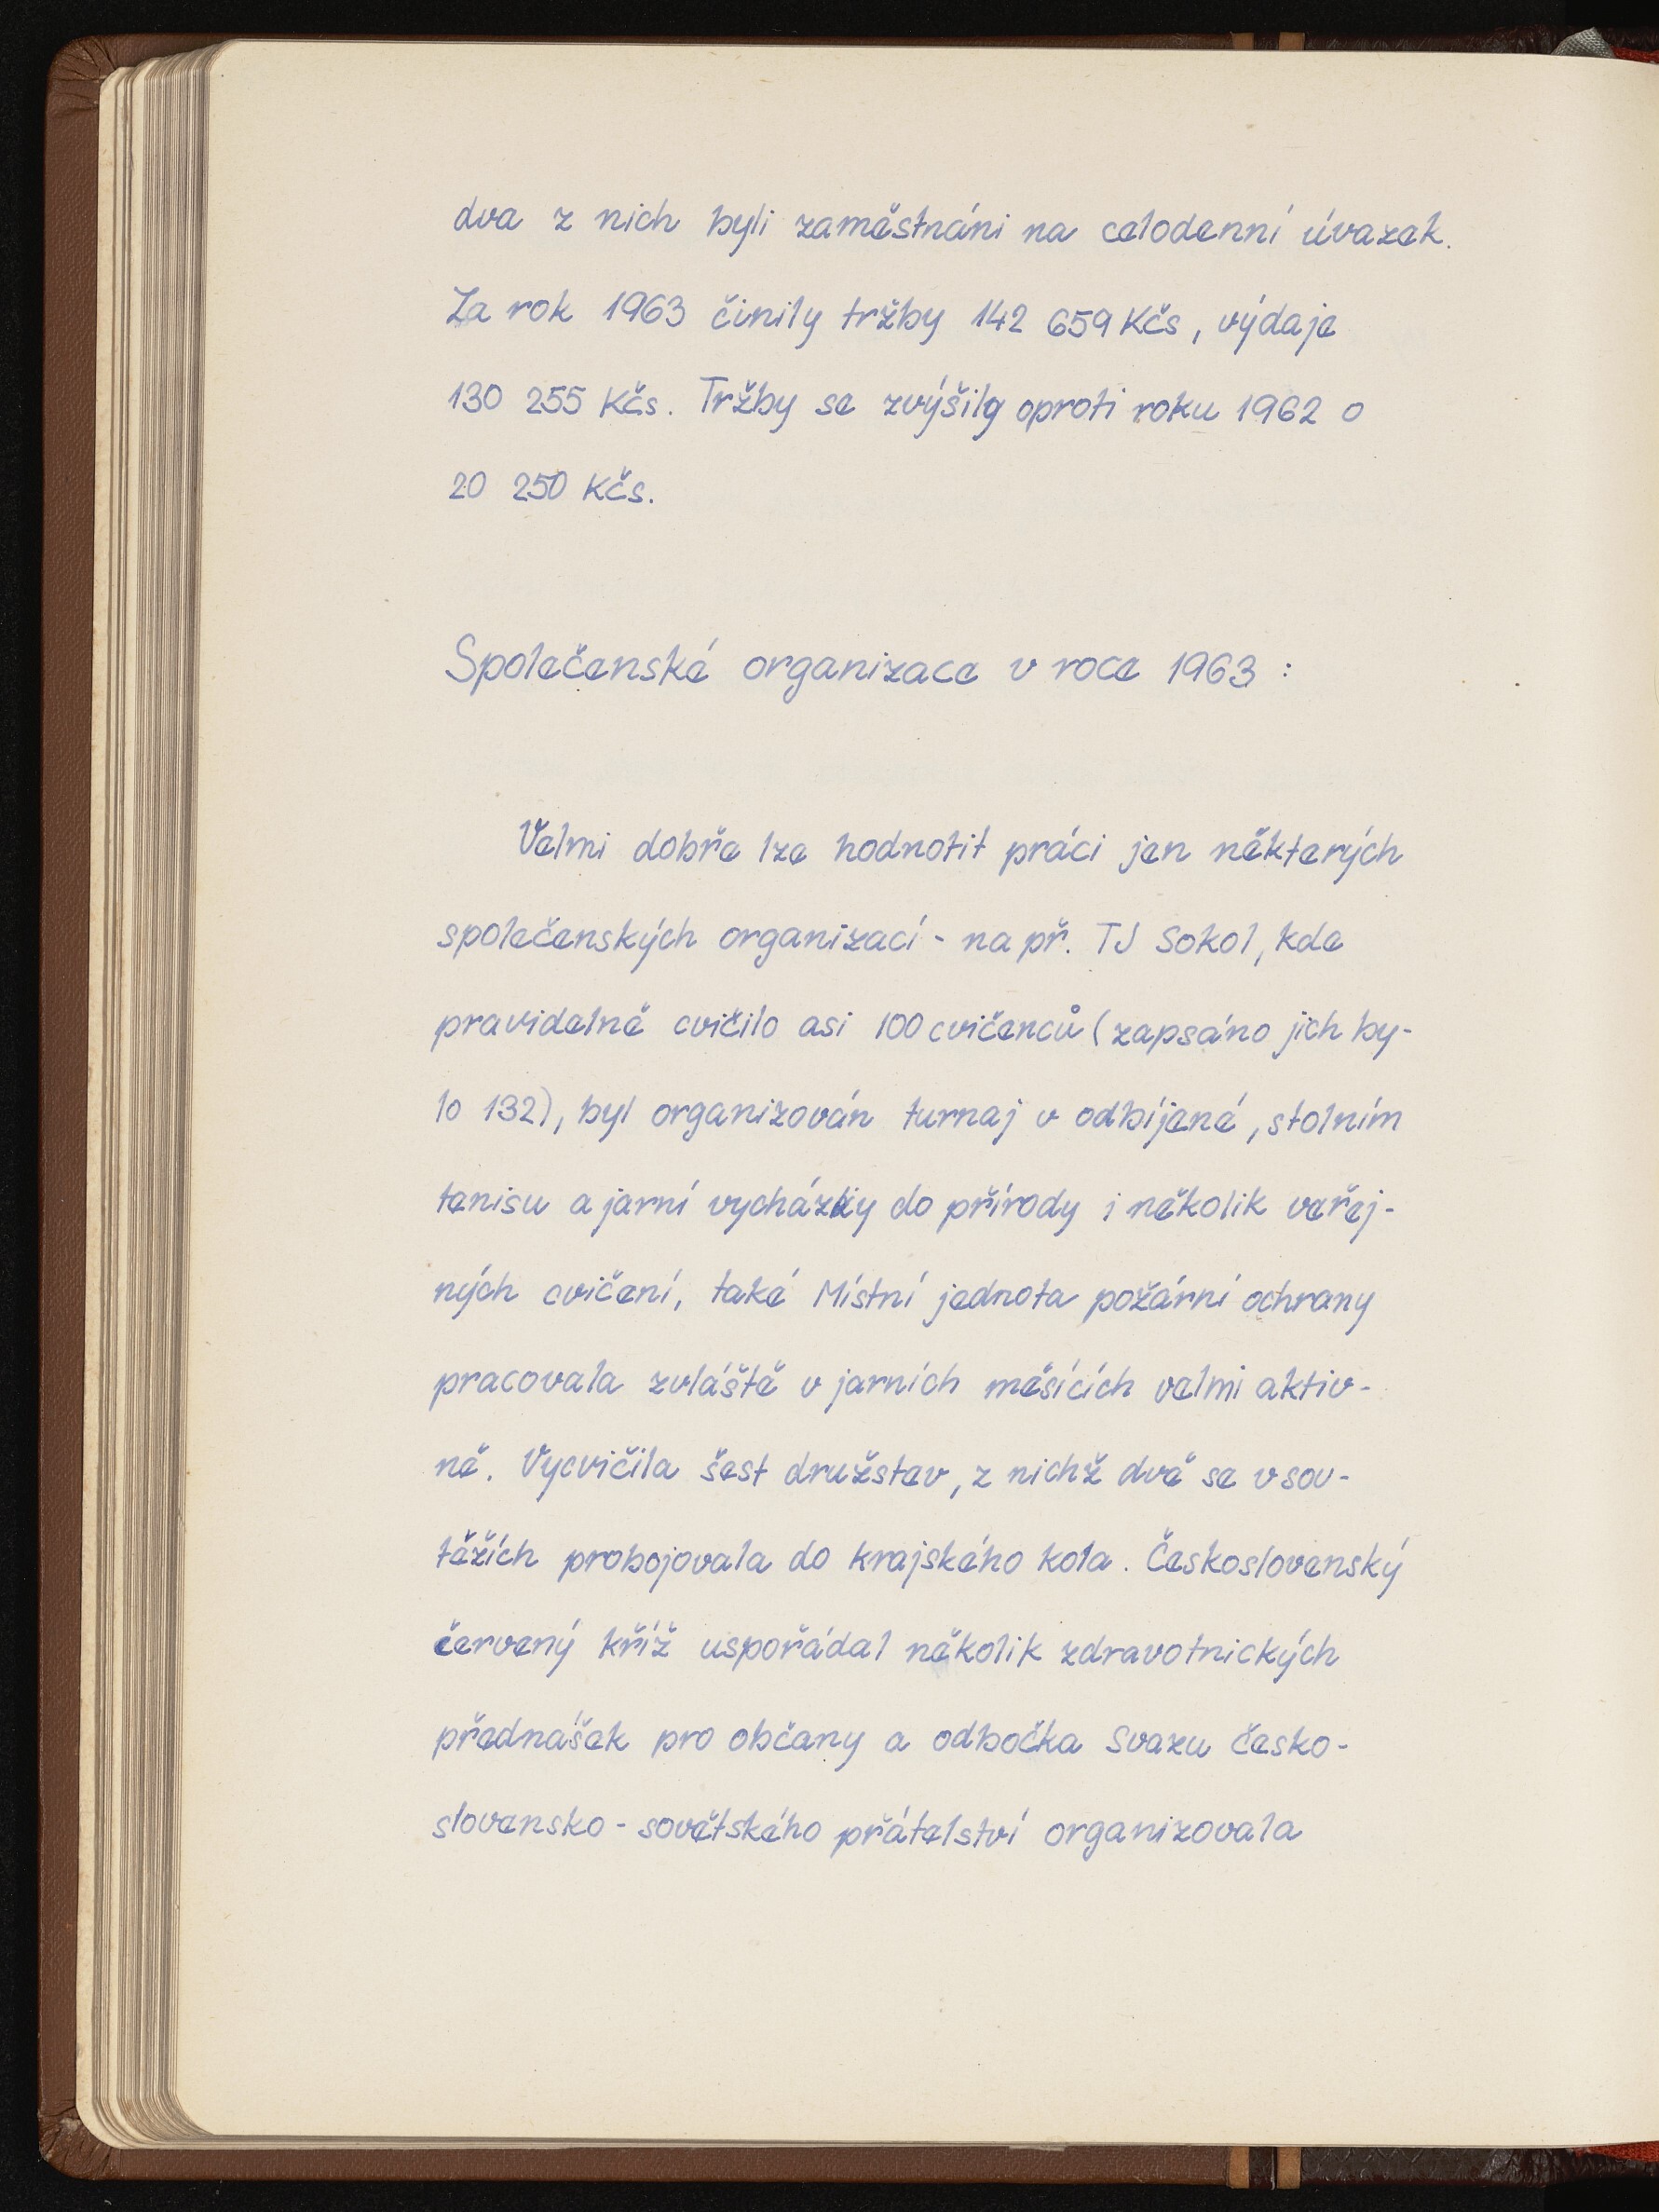 dva z nich byli zaměstnáni na celodenní úvazek.
Za rok 1963 činily tržby 142 659 Kčs, výdaje
130 255 Kčs. Tržby se zvýšily oproti roku 1962 o
20 250 Kčs.
Společenské organizace v roce 1963 :
Velmi dobře lze hodnotit práci jen některých
společenských organizací - na př. TJ Sokol, kde
pravidelně cvičilo asi 100 cvičenců (zapsáno jich by-
lo 132), byl organizován turnaj v odbíjené, stolním
tenisu a jarní vycházky do přírody i několik veřej-
ných cvičení, také Místní jednota požární ochrany
pracovala zvláště v jarních měsících velmi aktiv-
ně. Vycvičila šest družstev, z nichž dvě se v sou-
těžích probojovala do krajského kola. Československý
červený kříž uspořádal několik zdravotnických
přednášek pro občany a odbočka Svazu česko-
slovensko - sovětského přátelství organizovala